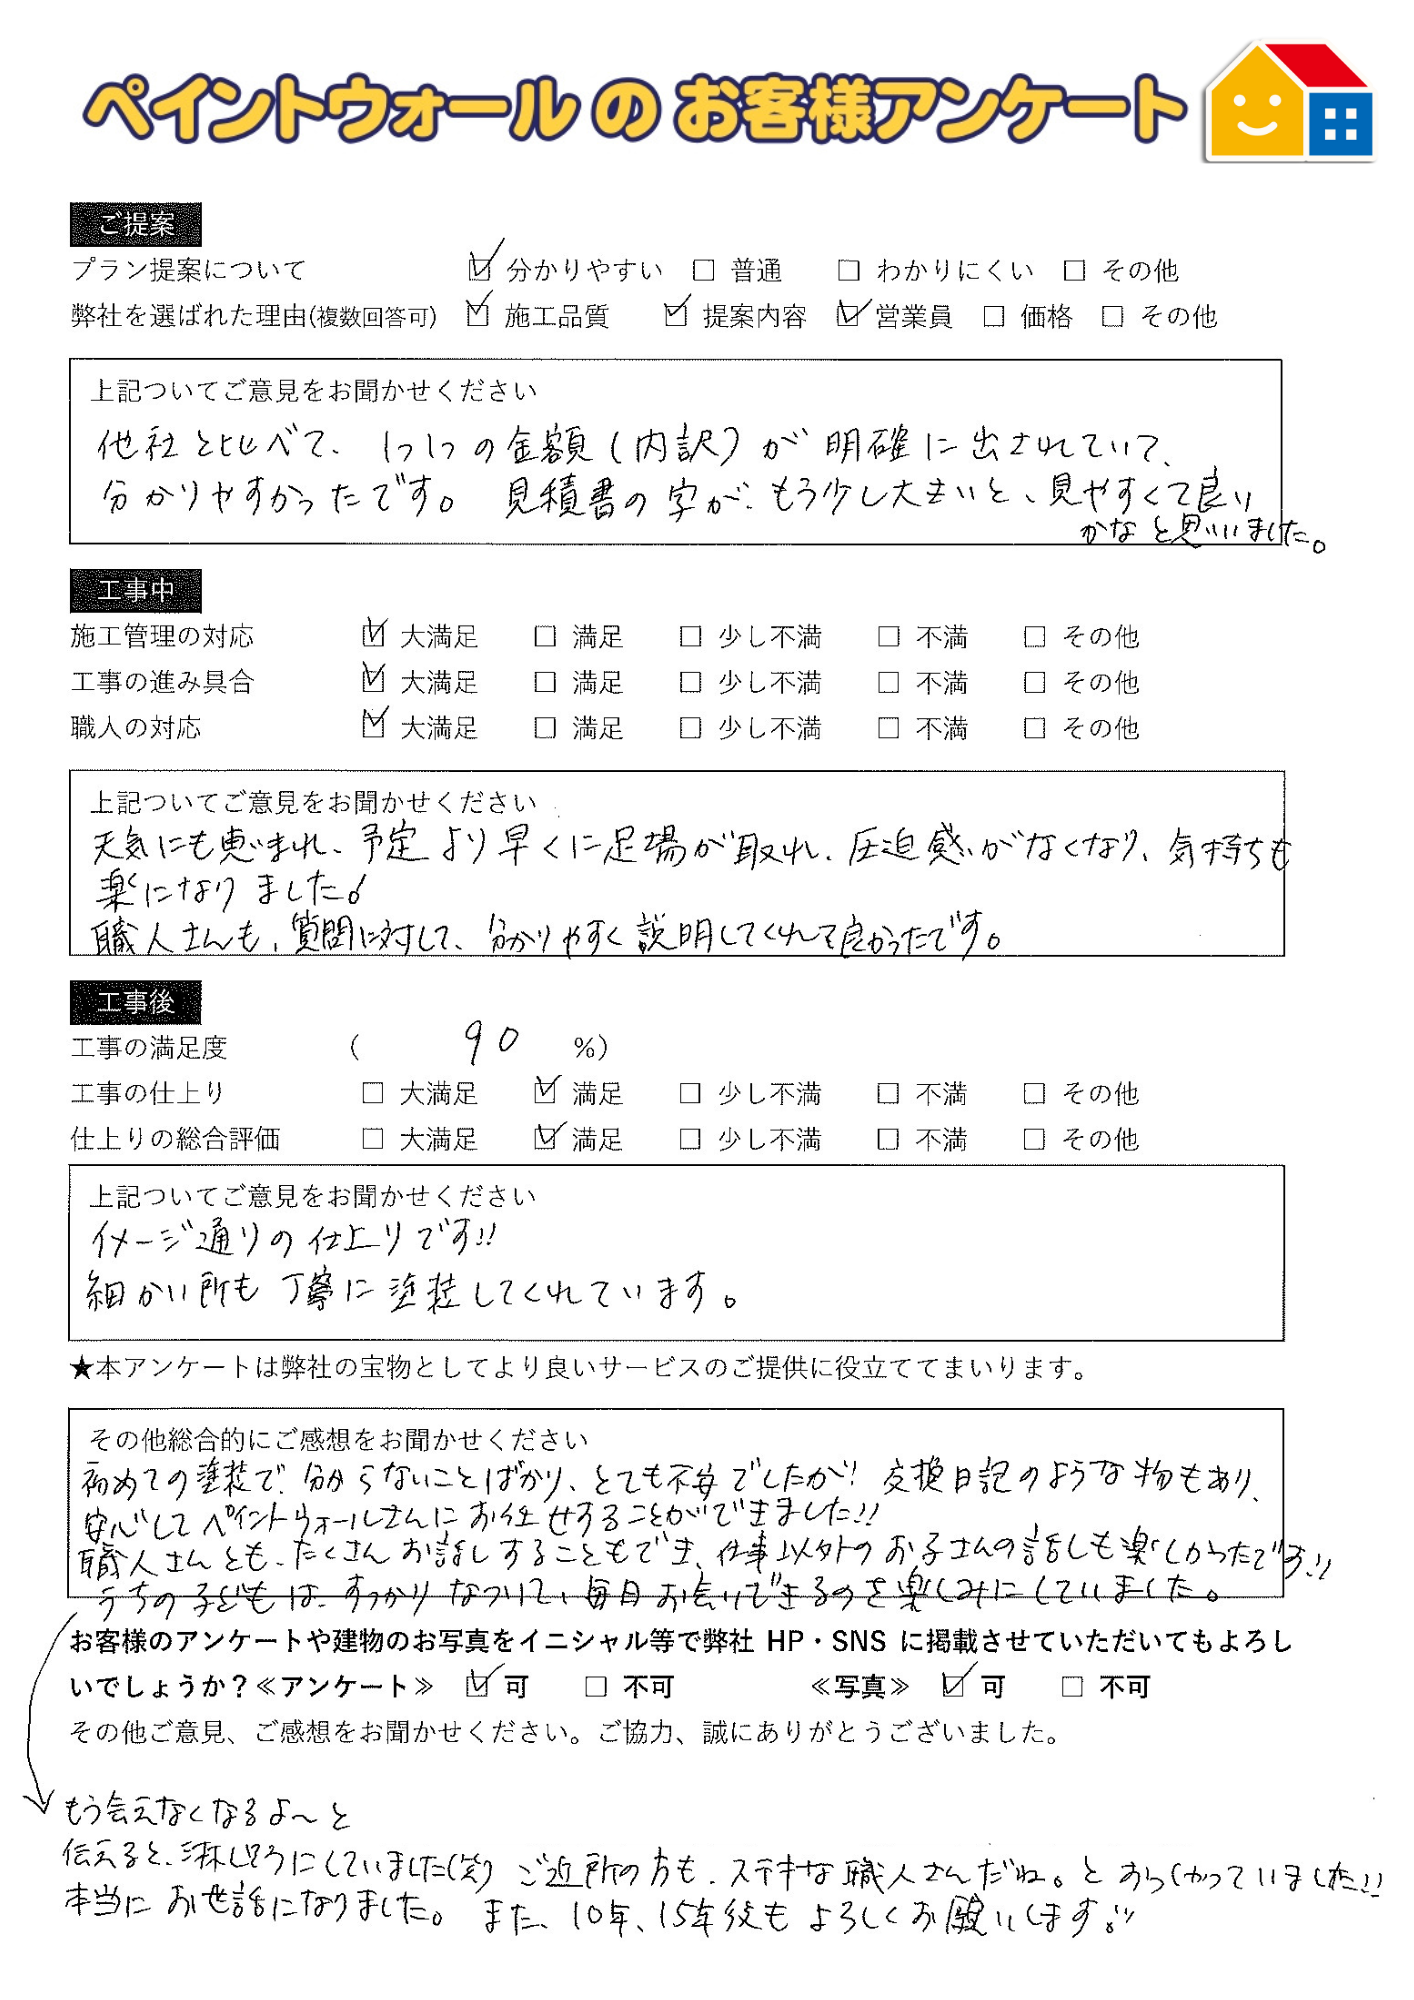 ペイントウォールのお客様アンケート
ご提案
プラン提案について ☑ 分かりやすい □ 普通 □ わかりにくい □ その他
弊社を選ばれた理由(複数回答可) ☑ 施工品質 ☑ 提案内容 ☑ 営業員 □ 価格 □ その他
上記ついてご意見をお聞かせください
他社と比べて、1つ1つの金額(内訳)が明確に出されていて、
分かりやすかったです。見積書の字が、もう少し大きいと、見やすくて良い
かなと思いました。
工事中
施工管理の対応 ☑ 大満足 □ 満足 □ 少し不満 □ 不満 □ その他
工事の進み具合 ☑ 大満足 □ 満足 □ 少し不満 □ 不満 □ その他
職人の対応 ☑ 大満足 □ 満足 □ 少し不満 □ 不満 □ その他
上記ついてご意見をお聞かせください
天気にも恵まれ、予定より早くに足場が取れ、圧迫感がなくなり、気持ちも
楽になりました!
職人さんも、質問に対して、分かりやすく説明してくれて良かったです。
工事後
工事の満足度 ( 90 %)
工事の仕上り □ 大満足 ☑ 満足 □ 少し不満 □ 不満 □ その他
仕上りの総合評価 □ 大満足 ☑ 満足 □ 少し不満 □ 不満 □ その他
上記ついてご意見をお聞かせください
イメージ通りの仕上りです!!
細かい所も丁寧に塗装してくれています。
★本アンケートは弊社の宝物としてより良いサービスのご提供に役立ててまいります。
その他総合的にご感想をお聞かせください
初めての塗装で、分からないことばかり、とても不安でしたが! 交換日記のような物もあり、
安心してペイントウォールさんにお任せすることができました!!
職人さんとも、たくさんお話しすることもでき、仕事以外のお子さんの話しも楽しかったです!!
うちの子どもは、すっかりなついて、毎日お会いできるのを楽しみにしていました。
お客様のアンケートや建物のお写真をイニシャル等で弊社 HP・SNS に掲載させていただいてもよろし
いでしょうか?≪アンケート≫ ☑ 可 □ 不可 ≪写真≫ ☑ 可 □ 不可
その他ご意見、ご感想をお聞かせください。ご協力、誠にありがとうございました。
もう会えなくなるよ〜と
伝えると、淋しそうにしていました(笑) ご近所の方も、ステキな職人さんだね。とおっしゃっていました!!
本当にお世話になりました。また、10年、15年後もよろしくお願いします!!